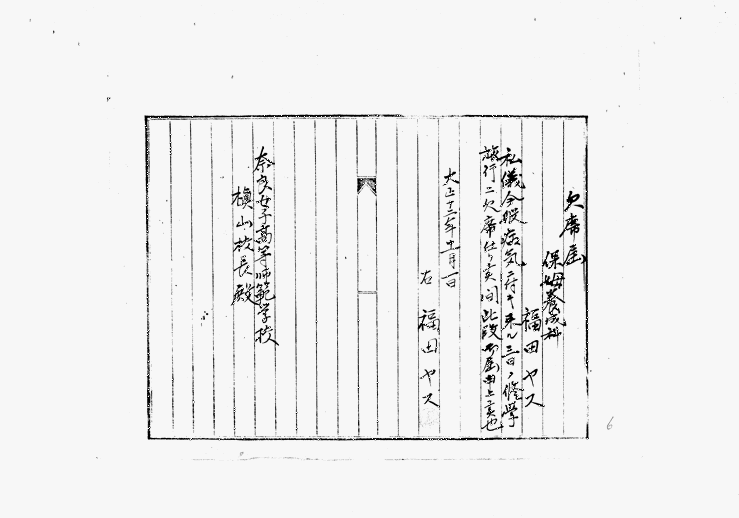 欠席届
保姆養成科
福田ヤス
私儀今般病気ニ付キ来ル三日ノ修学
旅行ニ欠席仕リ度間此段御届申上候也
大正十三年十一月一日
右 福田ヤス
奈良女子高等師範学校
槇山校長殿
6